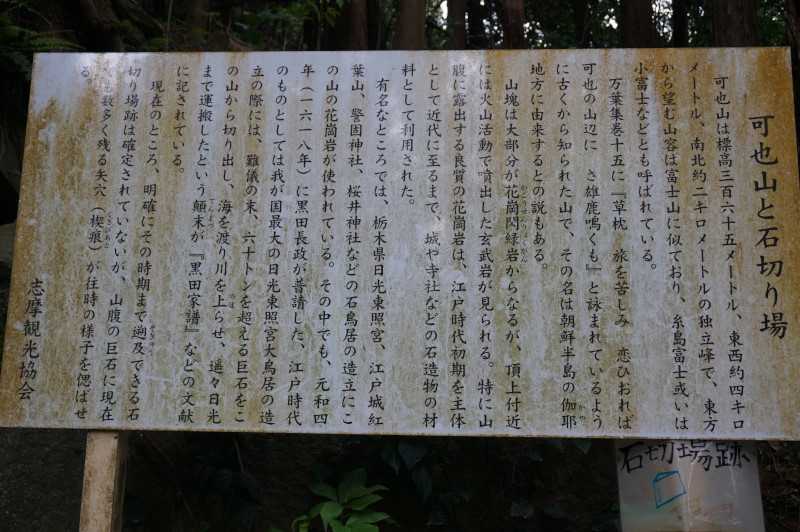 可也山と石切り場
可也山は標高三百六十五メートル、東西約四キロ
メートル、南北約二キロメートルの独立峰で、東方
から望む山容は富士山に似ており、糸島富士或いは
小富士などとも呼ばれている。
万葉集巻十五に『草枕 旅を苦しみ 恋ひおれば
可也の山辺に さ雄鹿鳴くも』と詠まれているよう
に古くから知られた山で、その名は朝鮮半島の伽耶
地方に由来するとの説もある。
山塊は大部分が花崗閃緑岩からなるが、頂上付近
には火山活動で噴出した玄武岩が見られる。特に山
腹に露出する良質の花崗岩は、江戸時代初期を主体
として近代に至るまで、城や寺社などの石造物の材
料として利用された。
有名なところでは、栃木県日光東照宮、江戸城紅
葉山、警固神社、桜井神社などの石鳥居の造立にこ
の山の花崗岩が使われている。その中でも、元和四
年（一六一八年）に黒田長政が普請した、江戸時代
のものとしては我が国最大の日光東照宮大鳥居の造
立の際には、難儀の末、六十トンを超える巨石をこ
の山から切り出し、海を渡り川を上らせ、遥々日光
まで運搬したという顛末が『黒田家譜』などの文献
に記されている。
現在のところ、明確にその時期まで遡及できる石
切り場跡は確定されていないが、山腹の巨石に現在
も数多く残る矢穴（楔痕）が往時の様子を偲ばせ
る。
志摩観光協会
石切場跡